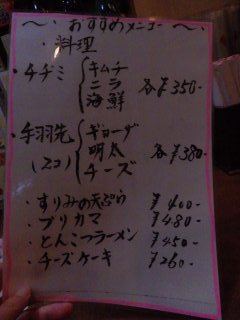 〜おすすめメニュー〜
・料理
チヂミ キムチ
ニラ 各¥350-
海鮮
手羽先 ギョーザ
(2コ) 明太 各¥380-
チーズ
・すりみの天ぷら ¥400-
・ブリカマ ¥480-
・とんこつラーメン ¥450-
・チーズケーキ ¥260-